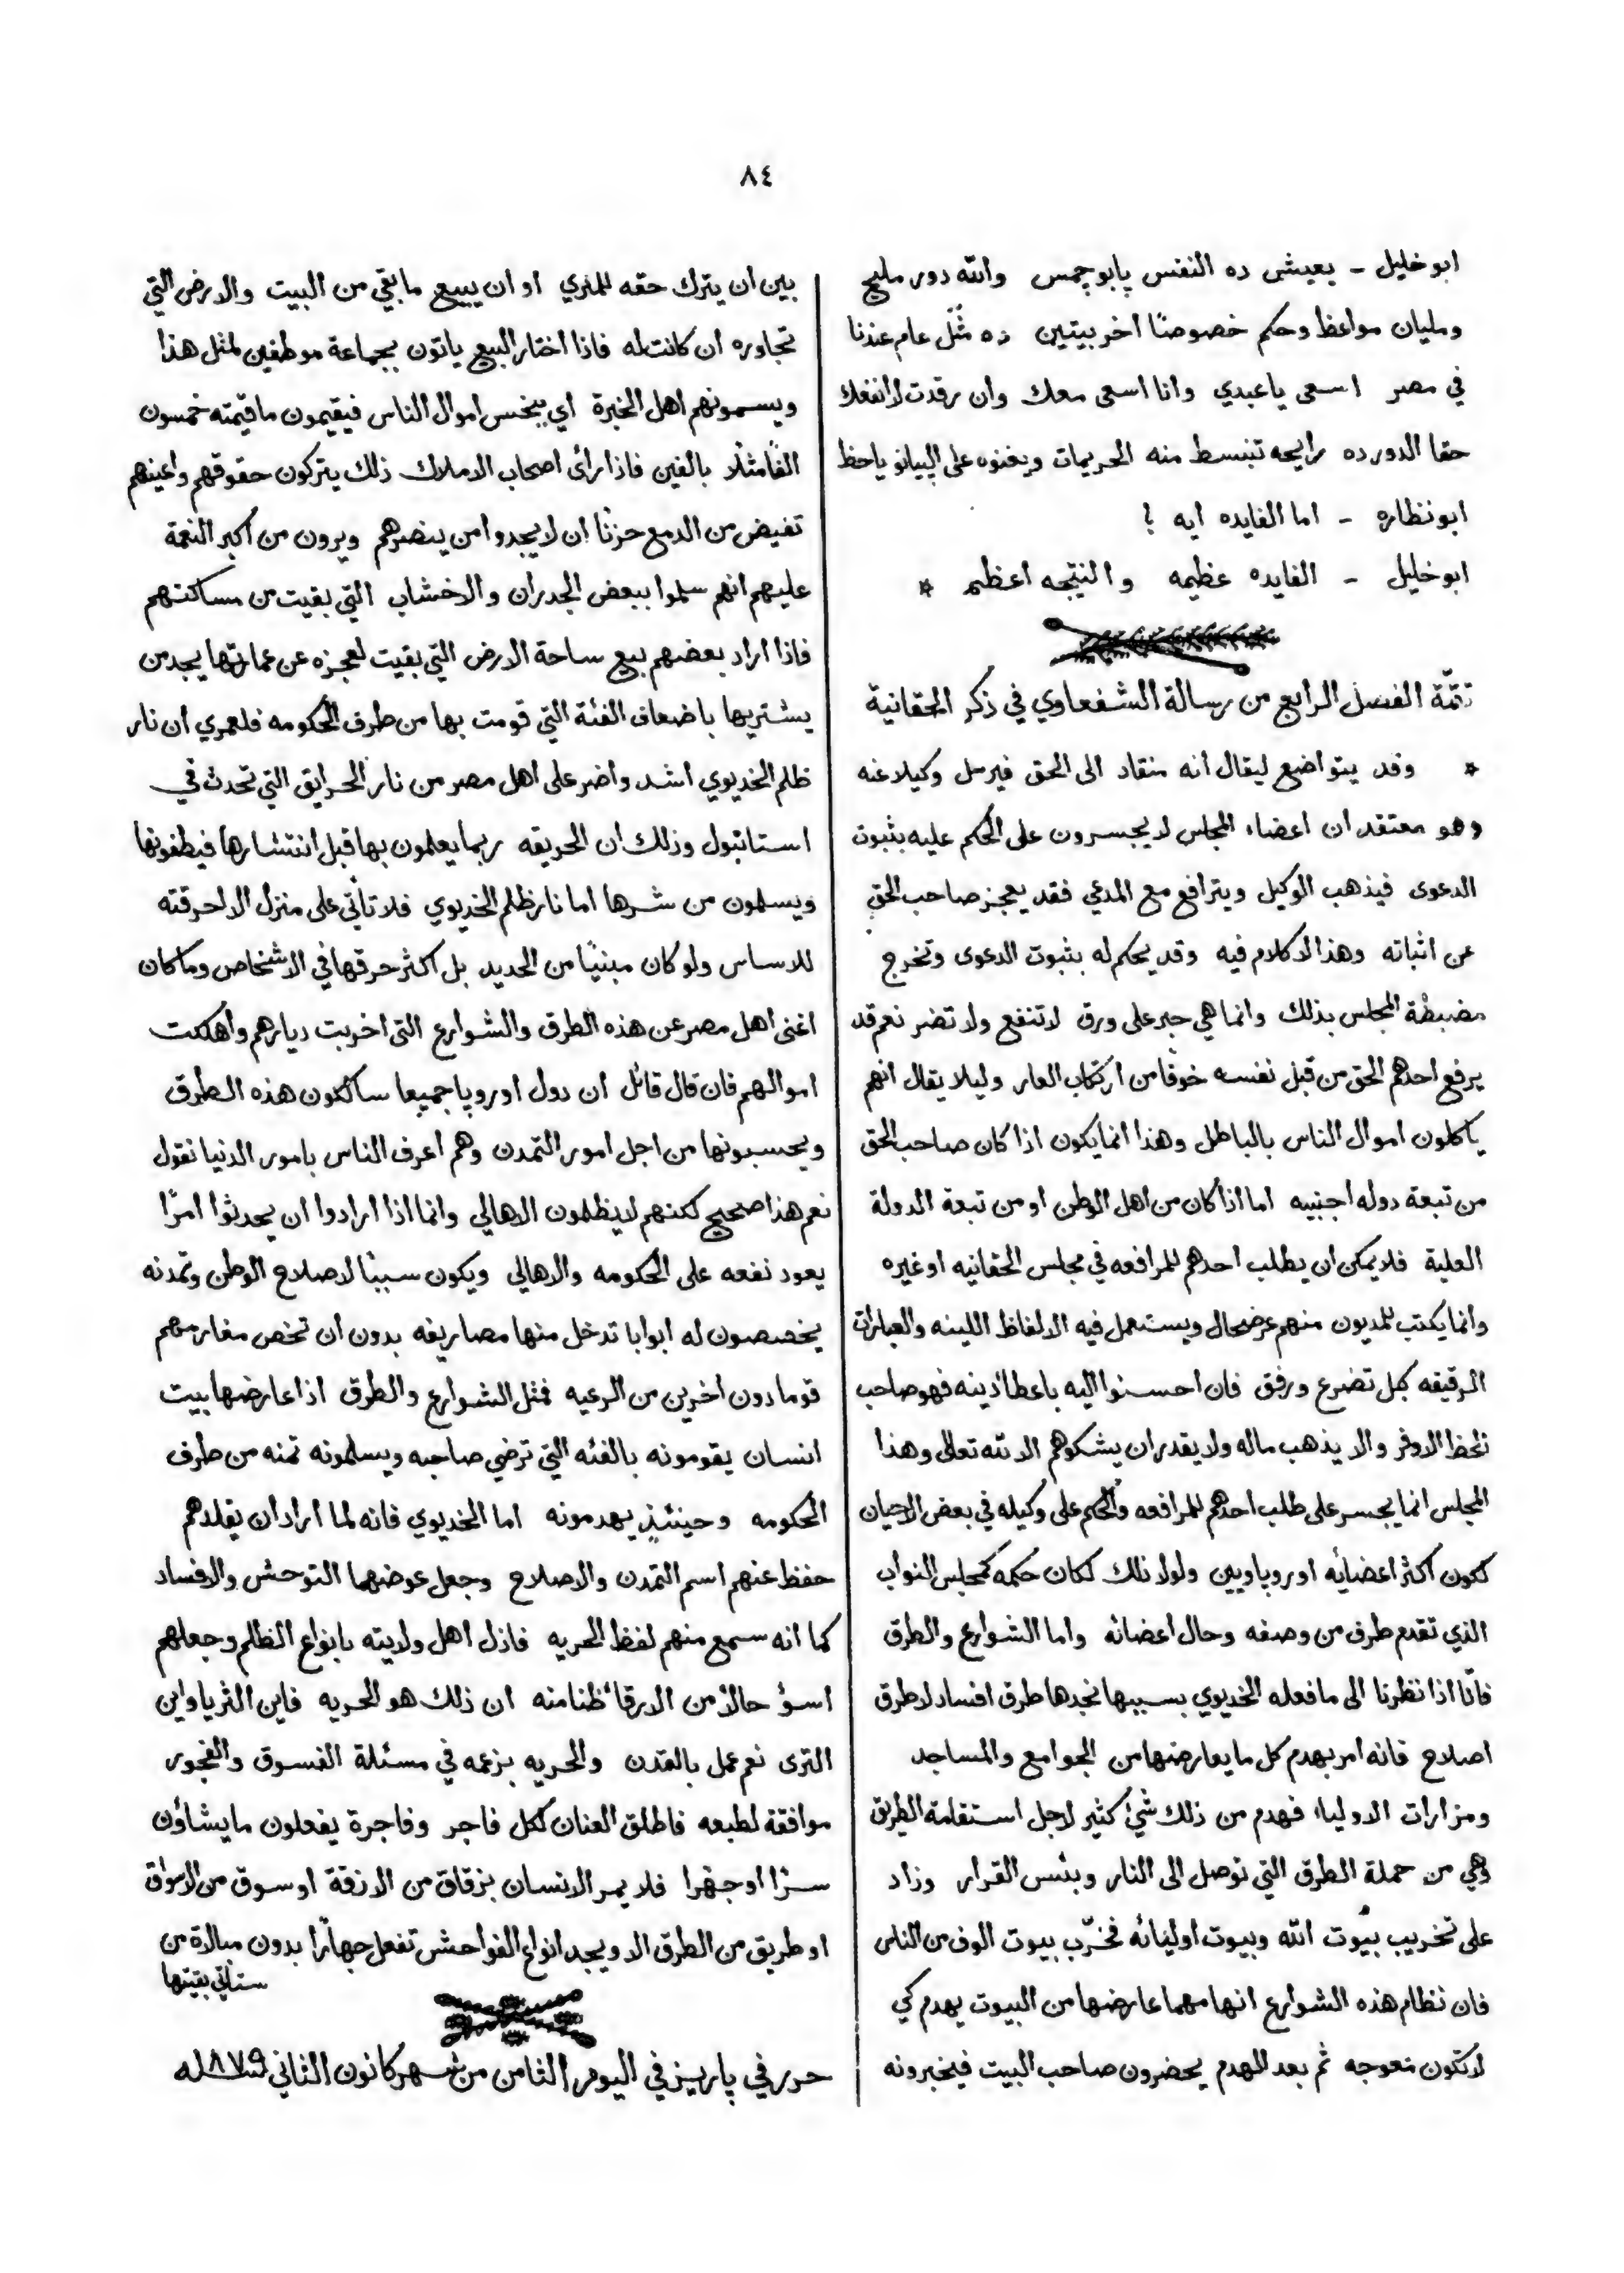 ٨٤
ابو خليل - يعيش ده النفس يابو چمس والله دور مليح
ومليان مواعظ وحكم خصوصًا اخر بيتين ده مَثَل عام عندنا
في مصر اسعى ياعبدي وانا اسعى معك وان رقدت لا انفعك
حقا الدور ده رايحه تنبسط منه الحريمات ويغنوه على البيانو ياحظ
ابو نظاره - اما الفايده ايه ؟
ابو خليل - الفايده عظيمه والنتيجه اعظم *
تتمّة الفصل الرابع من رسالة الشفعاوي في ذكر الحقانية
* وقد يتواضع ليقال انه منقاد الى الحق فيرسل وكيلا عنه
وهو معتقد ان اعضاء المجلس لا يجسرون على الحكم عليه بثبوت
الدعوى فيذهب الوكيل ويترافع مع المدعي فقد يعجز صاحب الحق
عن اثباته وهذا لا كلام فيه وقد يحكم له بثبوت الدعوى وتخرج
مضبطة المجلس بذلك وانما هي حبر على ورق لا تنفع ولا تضر نعم قد
يرفع احدهم الحق من قبل نفسه خوفًا من ارتكاب العار وليلا يقال انهم
ياكلون اموال الناس بالباطل وهذا انما يكون اذا كان صاحب الحق
من تبعة دوله اجنبيه اما اذا كان من اهل الوطن او من تبعة الدولة
العلية فلا يمكن ان يطلب احدهم للمرافعه في مجلس الحقانيه او غيره
وانما يكتب للمديون منهم عرضحال ويستعمل فيه الالفاظ اللينه والعبارات
الرقيقه بكل تضرع ورفق فان احسنوا اليه باعطاء دينه فهو صاحب
الحظ الاوفر والا يذهب ماله ولا يقدر ان يشكوهم الا لله تعالى وهذا
المجلس انما يجسر على طلب احدهم للمرافعه والحكم على وكيله في بعض الاحيان
لكون اكثر اعضائه اوروپاويين ولولا ذلك لكان حكمه كمجلس النواب
الذي تقدم طرف من وصفه وحال اعضائه واما الشوارع والطرق
فانّا اذا نظرنا الى ما فعله الخديوي بسببها نجدها طرق افساد لا طرق
اصلاح فانه امر بهدم كل ما يعارضها من الجوامع والمساجد
ومزارات الاولياء فهدم من ذلك شئ كثير لاجل استقامة الطريق
وهي من جملة الطرق التي توصل الى النار وبئس القرار وزاد
على تخريب بيوت الله وبيوت اوليائه فخرّب بيوت الوف من الناس
فان نظام هذه الشوارع انها مهما عارضها من البيوت يهدم كي
لا تكون معوجه ثم بعد الهدم يحضرون صاحب البيت فيخيرونه
بين ان يترك حقه للميري او ان يبيع ما بقي من البيت والارض التي
تجاوره ان كانت له فاذا اختار البيع ياتون بجماعة موظفين لمثل هذا
ويسمونهم اهل الخبرة اي ببخس اموال الناس فيقيمون ما قيمته خمسون
الفًا مثلًا بالفين فاذا رأى اصحاب الاملاك ذلك يتركون حقوقهم واعينهم
تفيض من الدمع حزنًا ان لا يجدوا من ينصرهم ويرون من أكبر النعمة
عليهم انهم سلموا ببعض الجدران والاخشاب التي بقيت من مساكنهم
فاذا اراد بعضهم بيع ساحة الارض التي بقيت لعجزه عن عمارتها يجد من
يشتريها باضعاف الفئة التي قومت بها من طرف الحكومه فلعمري ان نار
ظلم الخديوي اشد واضر على اهل مصر من نار الحرايق التي تحدث في
استانبول وذلك ان الحريقه ربما يعلمون بها قبل انتشارها فيطفونها
ويسلمون من شرها اما نار ظلم الخديوي فلا تأتي على منزل الا احرقته
للاساس ولو كان مبنيًا من الحديد بل اكثر حرقها في الاشخاص وما كان
اغنى اهل مصر عن هذه الطرق والشوارع التى اخربت ديارهم وأهلكت
اموالهم فان قال قائل ان دول اوروپا جميعا سالكون هذه الطرق
ويحسبونها من اجل امور التمدن وهم أعرف الناس بامور الدنيا نقول
نعم هذا صحيح لكنهم لا يظلمون الاهالي وانما اذا ارادوا ان يحدثوا امرًا
يعود نفعه على الحكومه والاهالي ويكون سببًا لاصلاح الوطن وتمدنه
يخصصون له ابوابا تدخل منها مصاريفه بدون ان تخص مغارمهم
قوما دون اخرين من الرعيه فمثل الشوارع والطرق اذا عارضها بيت
انسان يقومونه بالفئه التي ترضي صاحبه ويسلمونه ثمنه من طرف
الحكومه وحينئذٍ يهدمونه اما الخديوي فانه لما اراد ان يقلدهم
حفظ عنهم اسم التمدن والاصلاح وجعل عوضهما التوحش والافساد
كما انه سمع منهم لفظ الحريه فاذل اهل ولايته بانواع الظلم وجعلهم
اسؤ حالًا من الارقاء ظنا منه ان ذلك هو الحريه فاين الثريا واين
الثرى نعم عمل بالتمدن والحريه بزعمه في مسئلة الفسوق والفجور
موافقة لطبعه فاطلق العنان لكل فاجر وفاجرة يفعلون ما يشاؤن
سرًا او جهرا فلا يمر الانسان بزقاق من الازقة او سوق من الاسواق
او طريق من الطرق الا ويجد انواع الفواحش تفعل جهارًا بدون مبالاة من
ستأتي بقيتها
حرر في پاريز في اليوم الثامن من شهر كانون الثاني ١٨٧٩ سنه